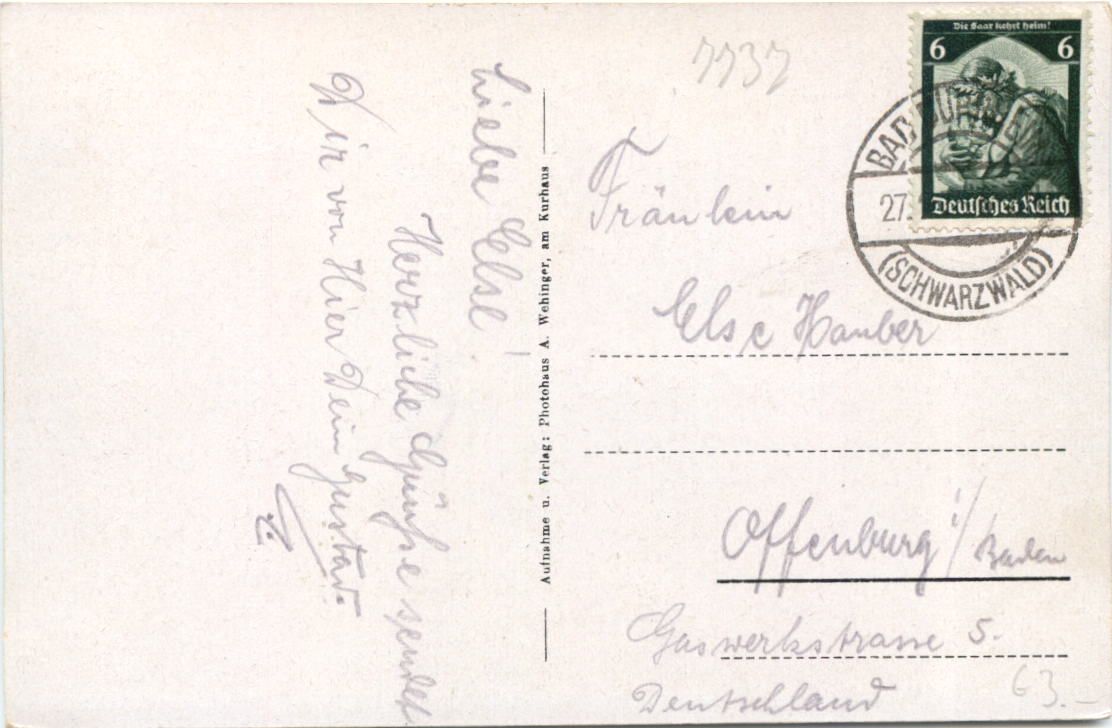 Liebe Else!
Herzliche Grüsse sendet
Dir von Hier Dein Gustav.
Aufnahme u. Verlag: Photohaus A. Wehinger, am Kurhaus
Die Saar kehrt heim!
6 6
Deutsches Reich
BAD
27.
(SCHWARZWALD)
Fräulein
Else Hauber
Offenburg i/Baden
Gaswerkstrasse 5.
Deutschland
63.-